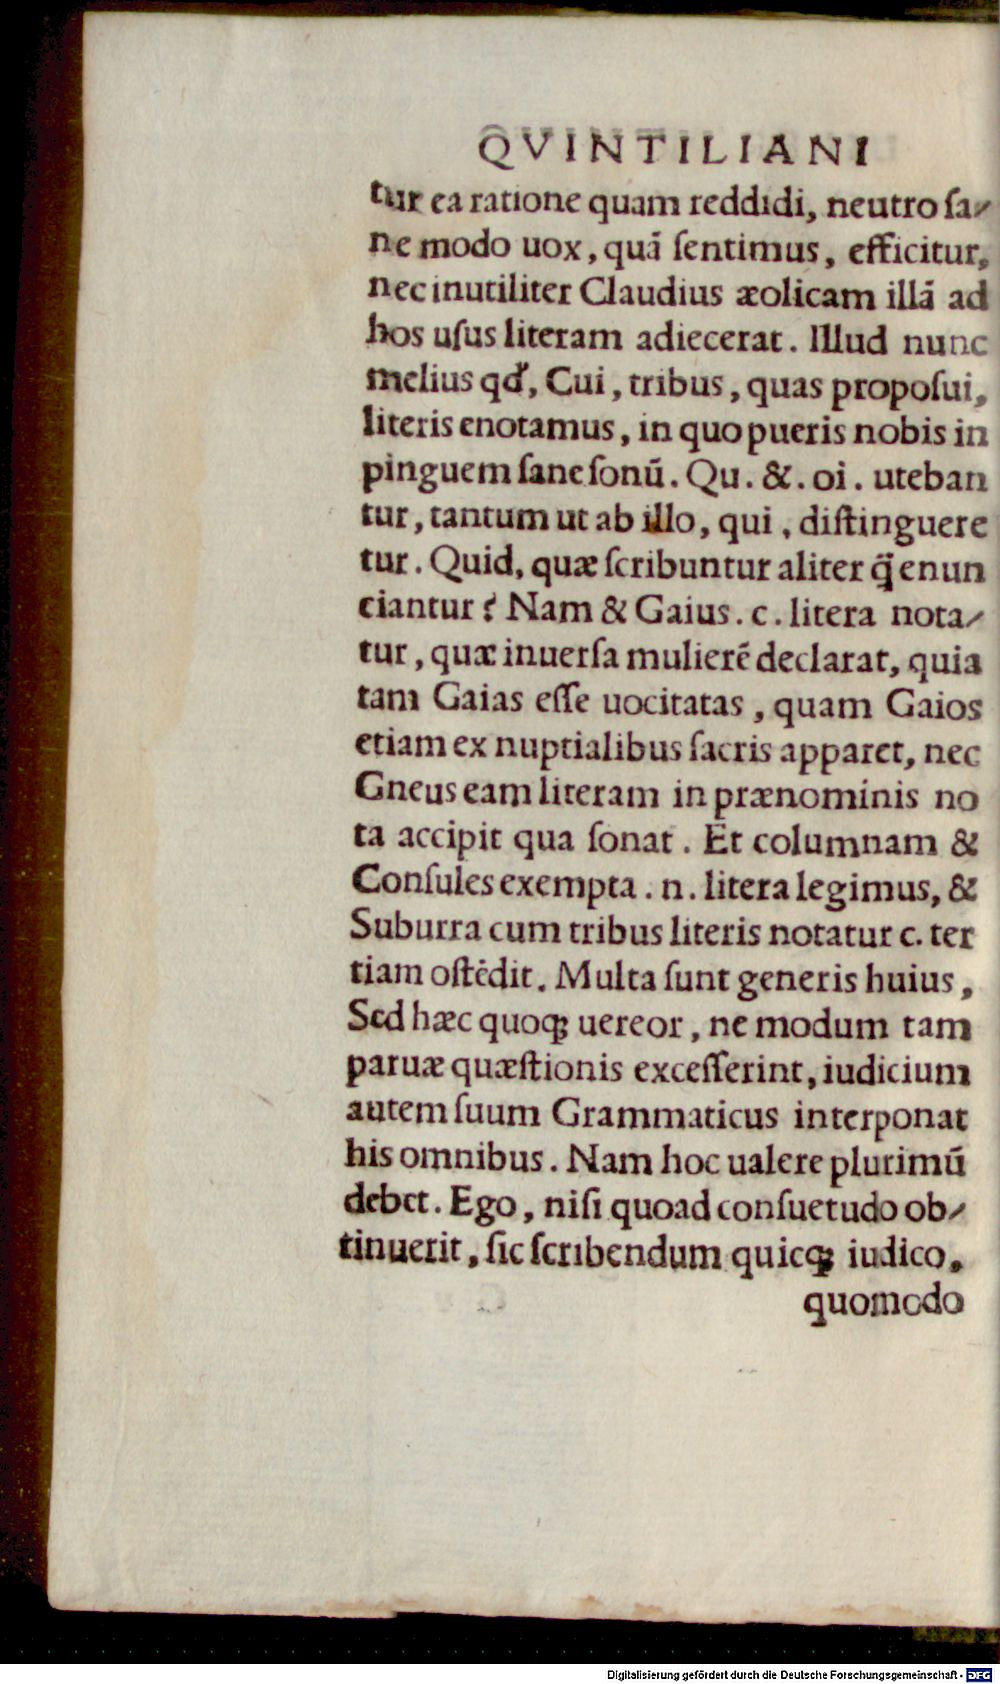 QVINTILIANI
tur ea ratione quam reddidi, neutro ſa-
ne modo uox, quā ſentimus, efficitur,
nec inutiliter Claudius æolicam illā ad
hos uſus literam adiecerat. Illud nunc
melius qď, Cui, tribus, quas propoſui,
literis enotamus, in quo pueris nobis in
pinguem ſane ſonū. Qu. &. oi. uteban
tur, tantum ut ab illo, qui, diſtinguere
tur. Quid, quæ ſcribuntur aliter q̃ enun
ciantur? Nam & Gaius. c. litera nota-
tur, quæ inuerſa mulierē declarat, quia
tam Gaias eſſe uocitatas, quam Gaios
etiam ex nuptialibus ſacris apparet, nec
Gneus eam literam in prænominis no
ta accipit qua ſonat. Et columnam &
Conſules exempta. n. litera legimus, &
Suburra cum tribus literis notatur c. ter
tiam oſtēdit. Multa ſunt generis huius,
Sed hæc quoqꝫ uereor, ne modum tam
paruæ quæſtionis exceſſerint, iudicium
autem ſuum Grammaticus interponat
his omnibus. Nam hoc ualere plurimū
debet. Ego, niſi quoad conſuetudo ob-
tinuerit, ſic ſcribendum quicqꝫ iudico,
quomodo
Digitalisierung gefördert durch die Deutsche Forschungsgemeinschaft - DFG